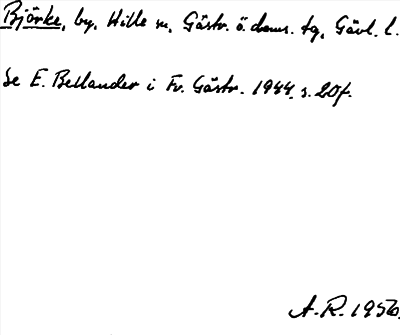 Björke, by, Hille sn, Gästr. ö. doms. tg, Gävl. l.
Se E. Bellander i Fr. Gästr. 1944 s. 20 f.
A.R. 1956.